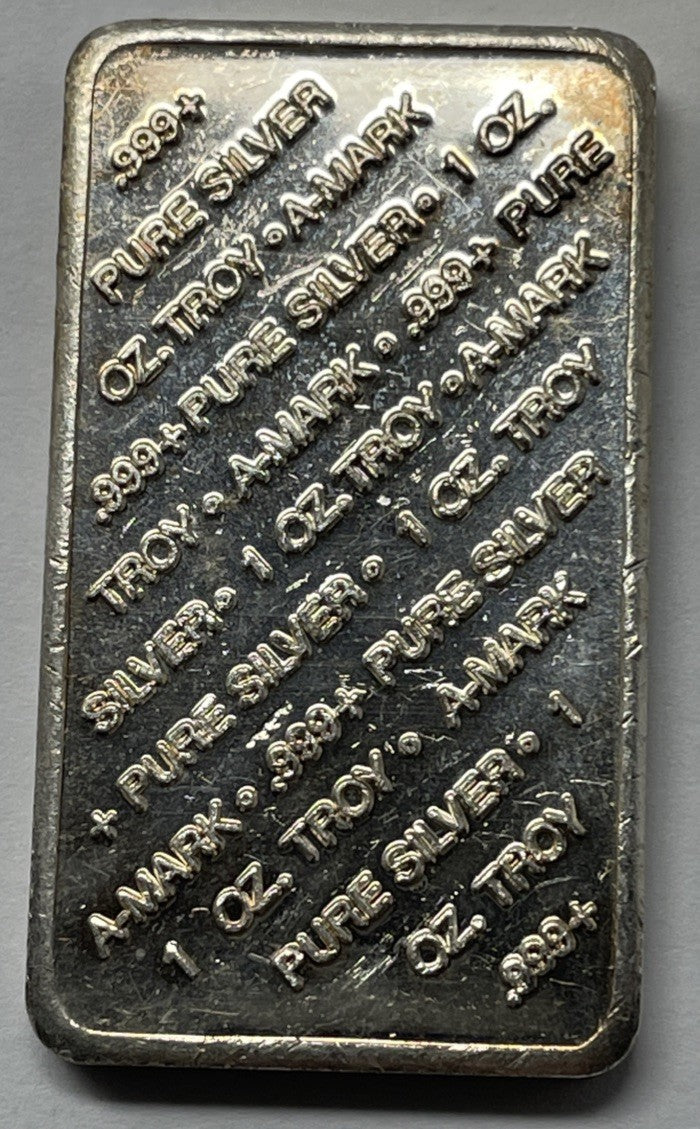 .999+
PURE SILVER
OZ. TROY • A-MARK
.999+ PURE SILVER • 1 OZ.
TROY • A-MARK • .999+ PURE
SILVER • 1 OZ. TROY • A-MARK
+ PURE SILVER • 1 OZ. TROY
A-MARK • .999+ PURE SILVER
1 OZ. TROY • A-MARK
PURE SILVER • 1
OZ. TROY
.999+